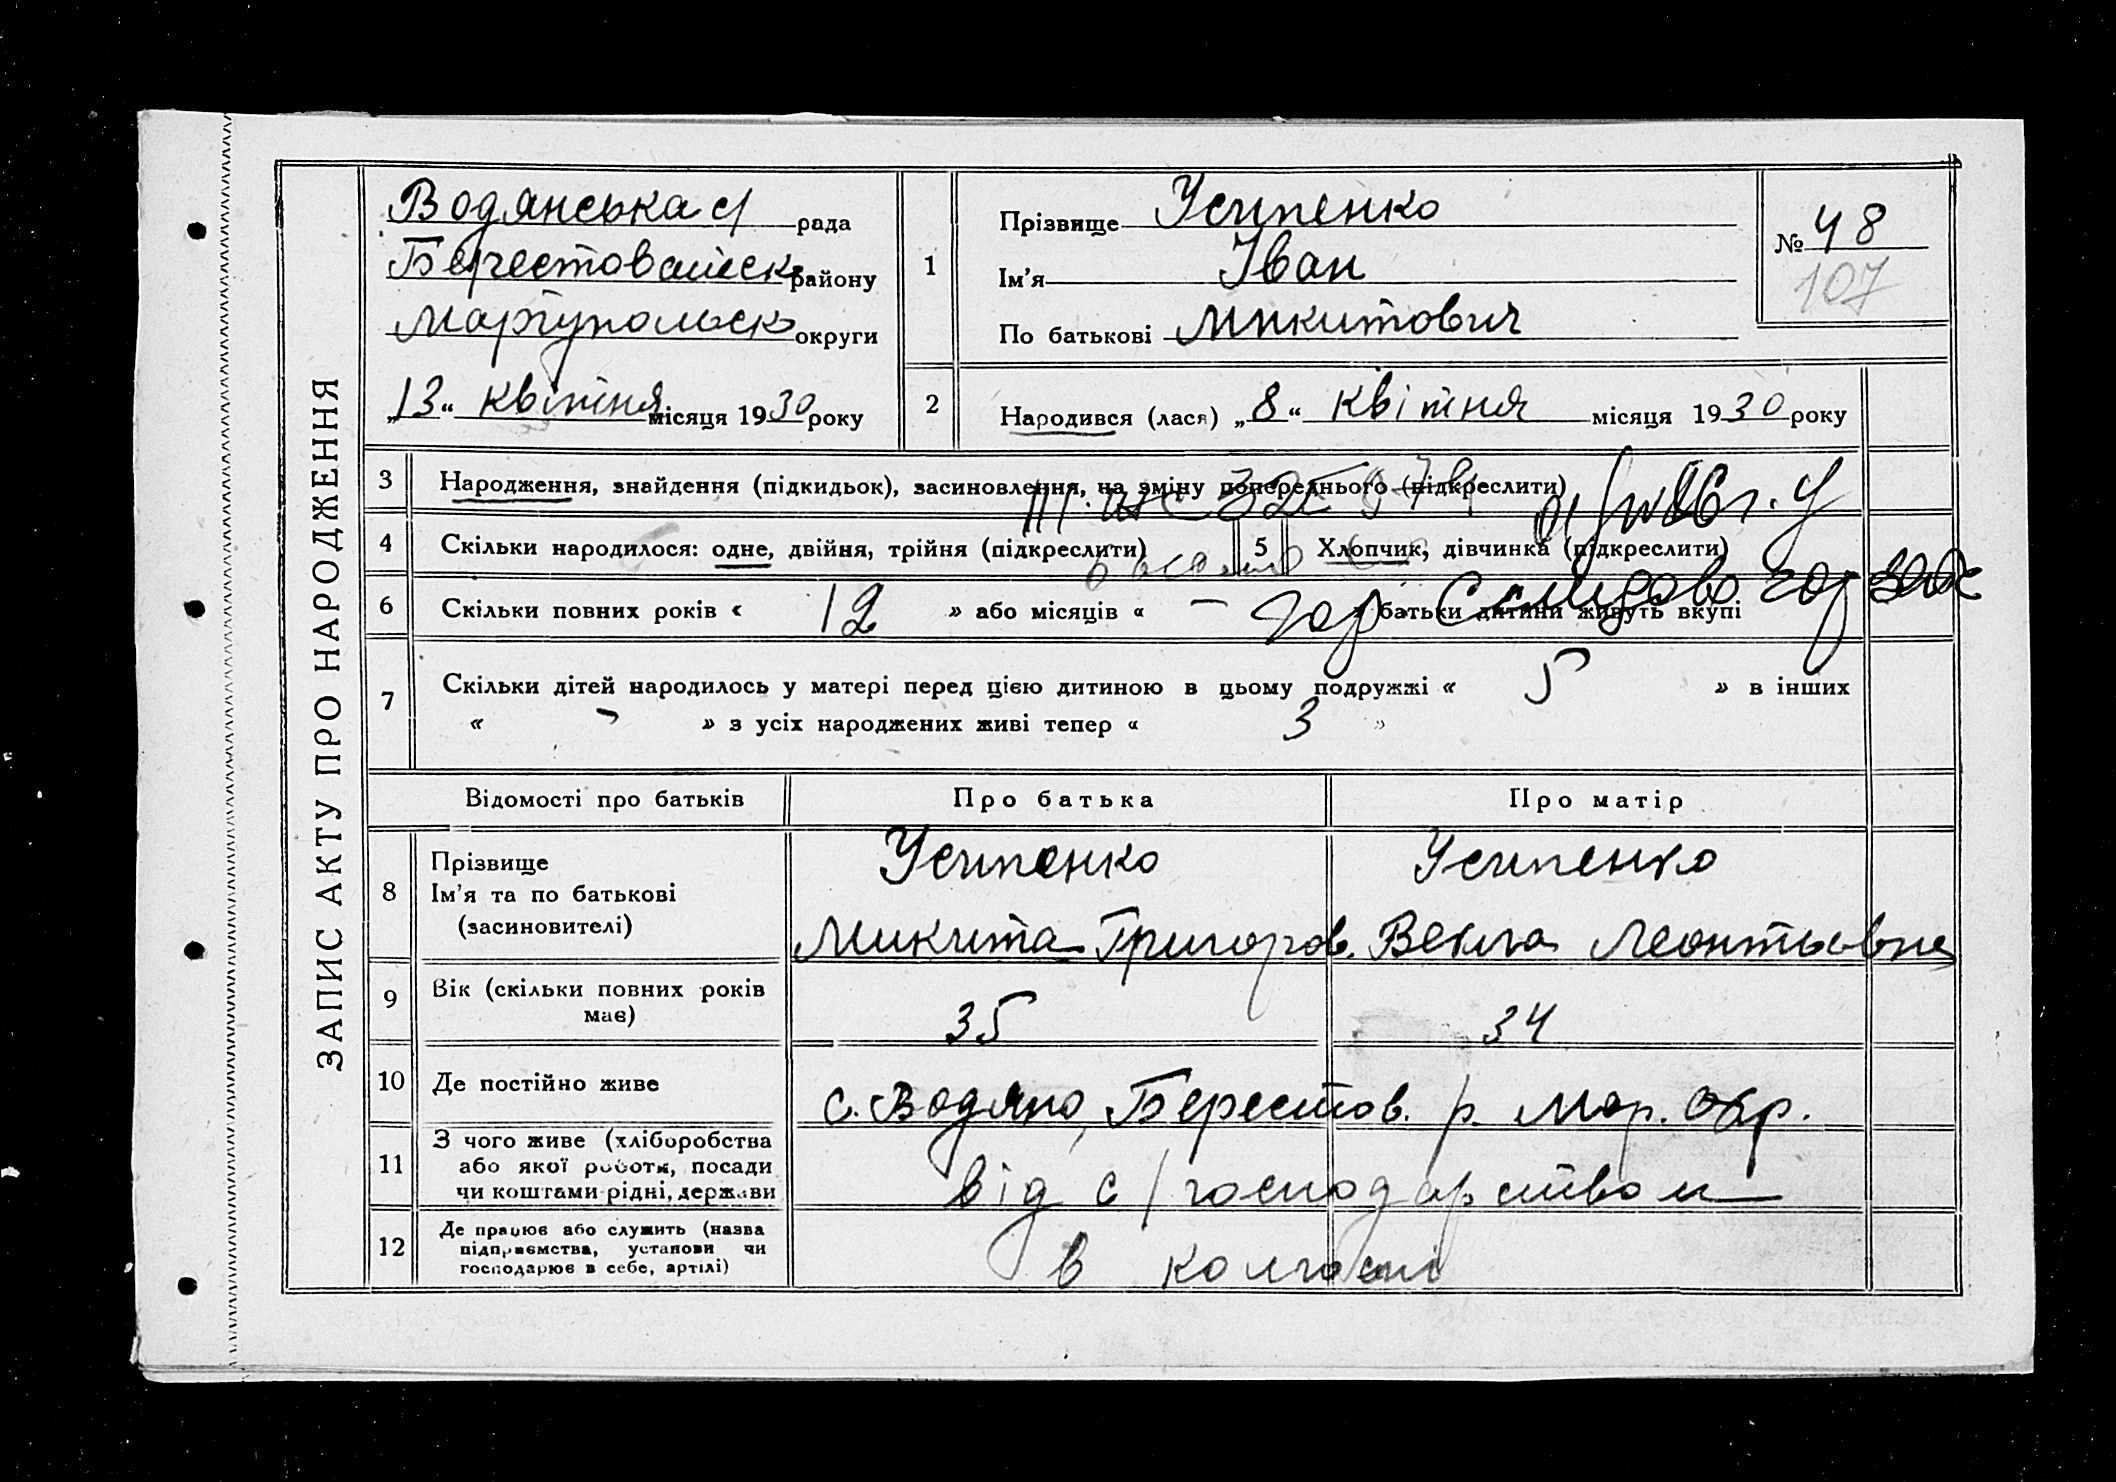 ЗАПИС АКТУ ПРО НАРОДЖЕННЯ
Водянська с/ рада
району
округи
„13“ квітня місяця 1930 року
1
Прізвище Усипенко
Ім’я Іван
По батькові Микитович
№ 48
107
2
Народився (лася) „8“ квітня місяця 1930 року
3 Народження, знайдення (підкидьок), засиновлення, на зміну попереднього (підкреслити)
4 Скільки народилося: одне, двійня, трійня (підкреслити)
5 Хлопчик, дівчинка (підкреслити)
6 Скільки повних років « 12 » або місяців « — » батьки дитини живуть вкупі
7 Скільки дітей народилось у матері перед цією дитиною в цьому подружжі « 5 » в інших
« – » з усіх народжених живі тепер « 3 »
Відомості про батьків Про батька Про матір
8 Прізвище
Ім’я та по батькові
(засиновителі)
Усипенко
Микита Григоров.
Усипенко
Векла Леонтьовна
9 Вік (скільки повних років
має)
35 34
10 Де постійно живе
с. Водяно, Берестов. р. Мар. Окр.
11 З чого живе (хліборобства
або якої роботи, посади
чи коштами рідні, держави
від с/господарством
12 Де працює або служить (назва
підприємства, установи чи
господарює в себе, артілі)
в колгоспі